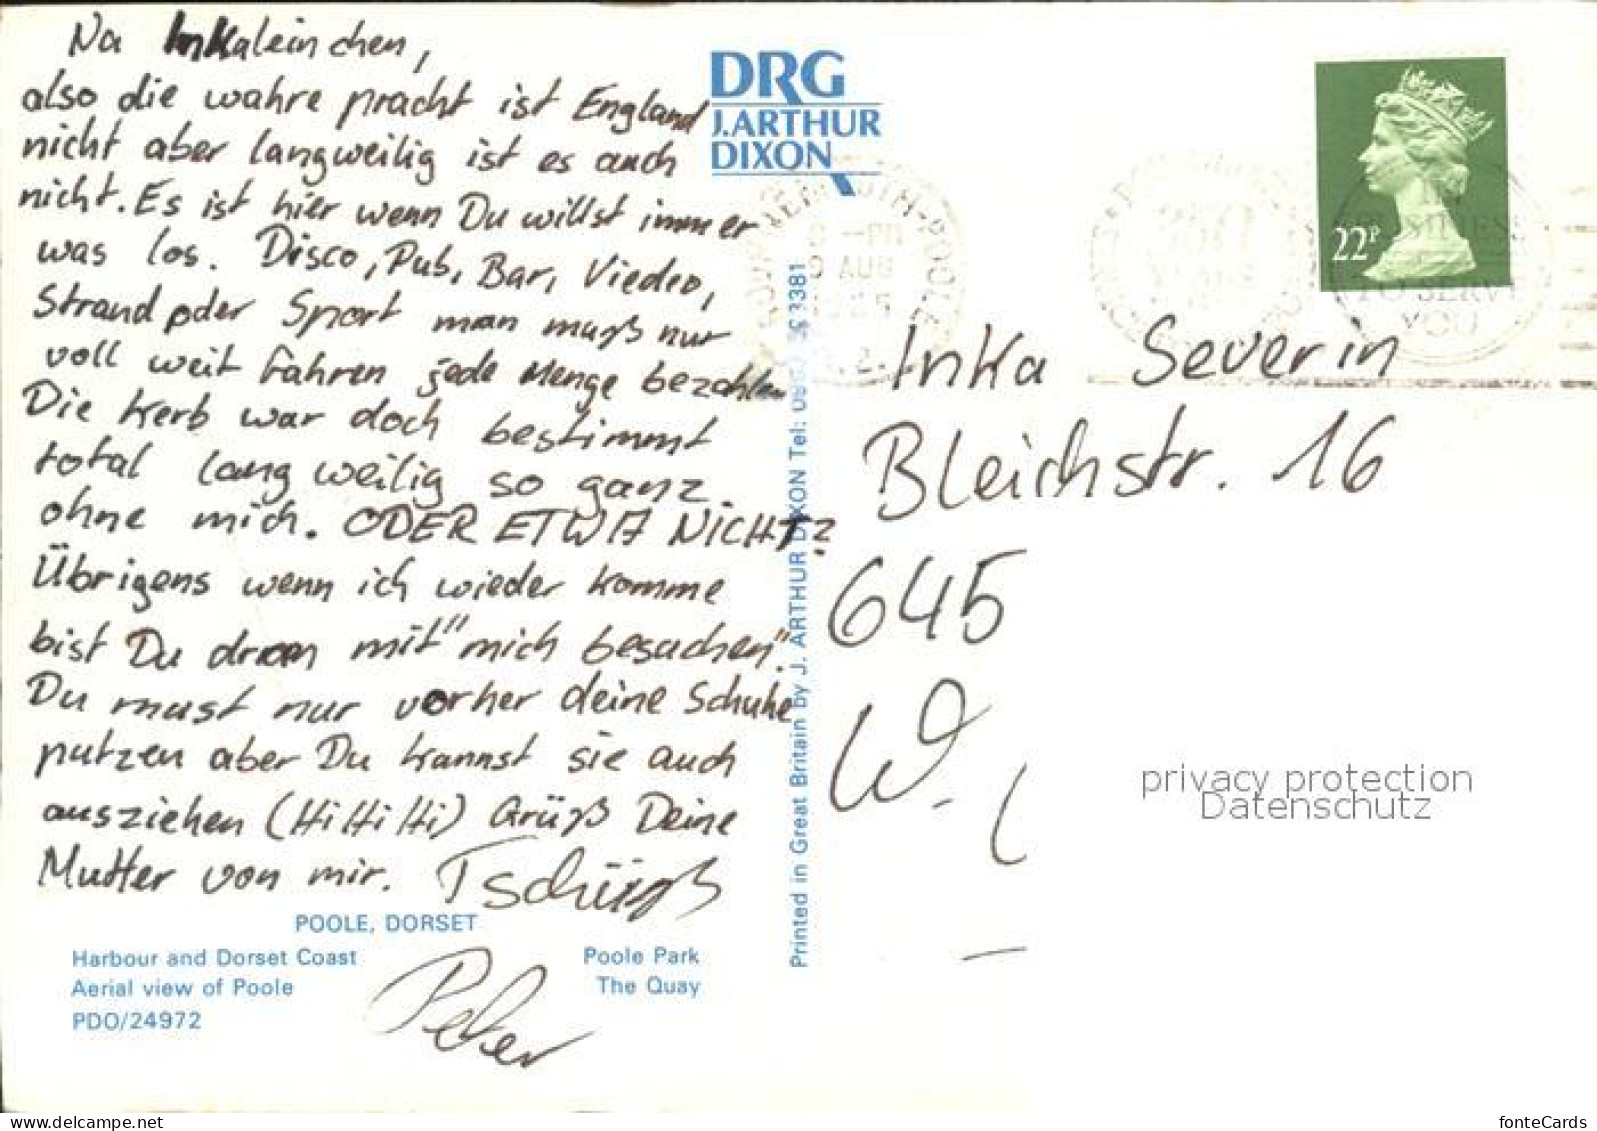 Na Inkaleinchen,
also die wahre pracht ist England
nicht aber langweilig ist es auch
nicht. Es ist hier wenn Du willst immer
was los. Disco, Pub, Bar, Viedeo,
Strand oder Sport man muß nur
voll weit fahren jede Menge bezahlen
Die Kerb war doch bestimmt
total langweilig so ganz
ohne mich. ODER ETWA NICHT?
Übrigens wenn ich wieder komme
bist Du dran mit "mich besuchen".
Du must nur vorher deine Schuhe
putzen aber Du kannst sie auch
ausziehen (Hi Hi Hi) Grüß Deine
Mutter von mir. Tschüß
Peter
POOLE, DORSET
Harbour and Dorset Coast Poole Park
Aerial view of Poole The Quay
PDO/24972
DRG
J.ARTHUR
DIXON
Printed in Great Britain by J. ARTHUR DIXON Tel: 3381
AUG
22P
TO SERVE
YOU
Inka Severin
Bleichstr. 16
645
W.
privacy protection
Datenschutz
fonteCards